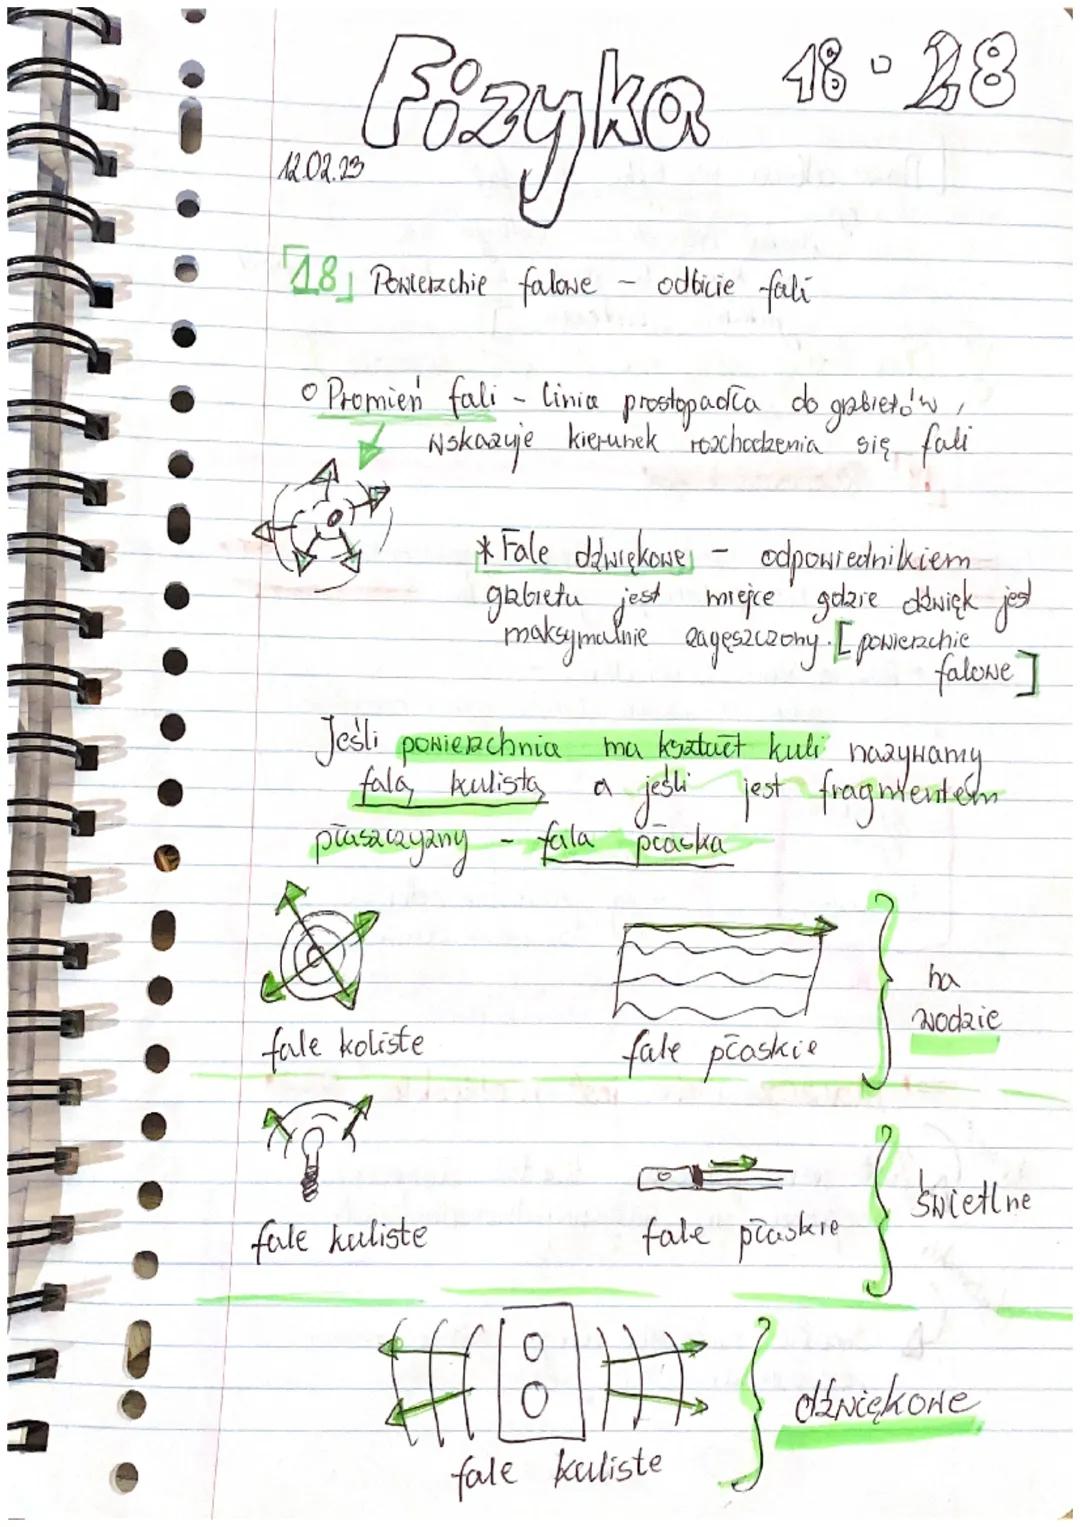 Fizyka 18 - 28
12.02.23
18 Powierzchie falowe - odbicie fali
Promień fali - linia prostopadła do grzbietów,
wskazuje kierunek rozchodzenia się fali
* Fale dźwiękowe - odpowiednikiem
grzbietu jest miejce gdzie dźwięk jest
maksymalnie zagęszczony. [powierzchie
falowe]
Jeśli powierzchnia ma kształt kuli nazywamy
falą kulistą, a jeśli jest fragmentem
płaszczyzny - fala płaska
fale koliste fale płaskie na
wodzie
fale kuliste fale płaskie świetlne
dźwiękowe
fale kuliste